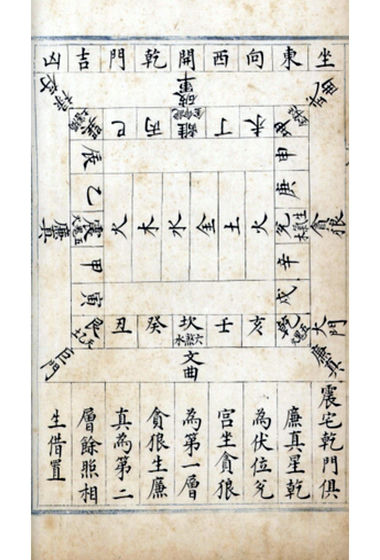 坐東向西開乾門吉凶
破軍
未丁離丙巳巽
申
庚
兌
辛
戌
乾
貪狼
大門
廉真
火土金水木火
辰
乙
震
甲
寅
廉真
亥壬坎癸丑艮
六煞水
文曲
巨門
震宅乾門俱
廉真星乾
為伏位兌
宮坐貪狼
為第一層
貪狼生廉
真為第二
層餘照相
生借置